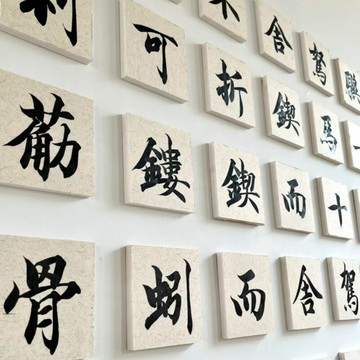 驥一
駑馬十駕
舍鍥而舍
不折鍥而
可鏤蚓
利荕骨